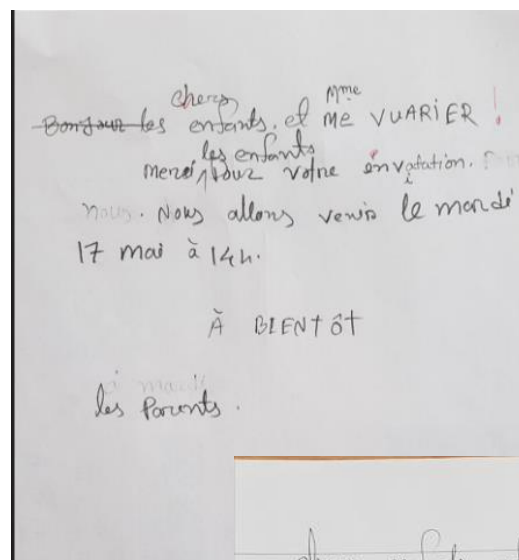 chers Mme
Bonjour les enfants. et me VUARIER !
les enfants
merci, pour votre invitation.
nous. Nous allons venir le mardi
17 mai à 14h.
À BIENTÔT
à mardi
les Parents.